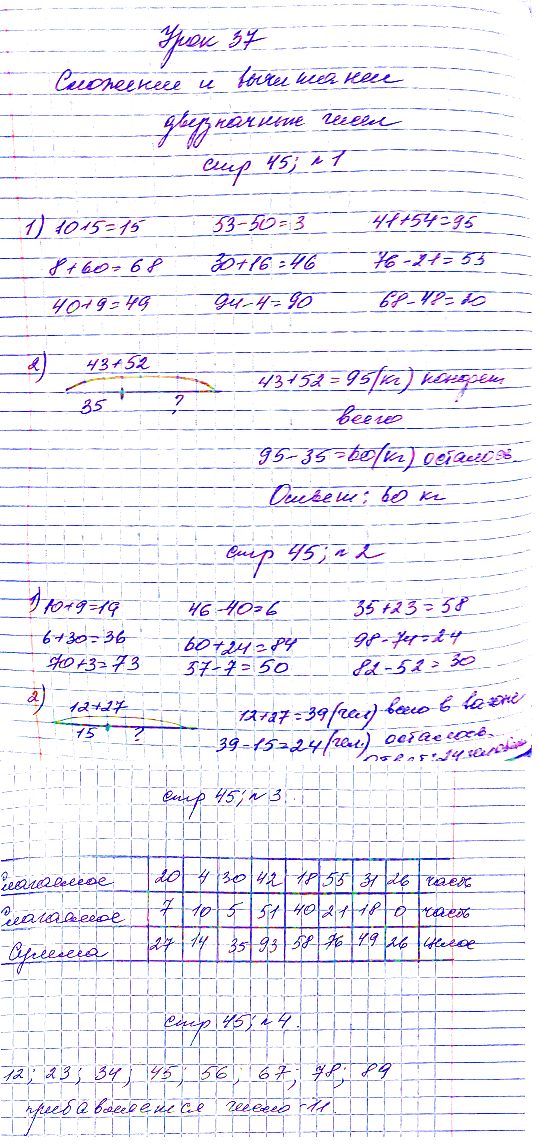 Урок 37
Сложение и вычитание
двузначных чисел
стр 45; №1
1) 10+5=15 53-50=3 41+54=95
8+60=68 30+16=46 76-21=55
40+9=49 94-4=90 68-48=20
2) 43+52
35 ?
43+52=95(кг) конфет
всего
95-35=60(кг) осталось
Ответ: 60 кг
стр 45; №2
1) 10+9=19 46-40=6 35+23=58
6+30=36 60+24=84 98-74=24
70+3=73 57-7=50 82-52=30
2) 12+27
15 ?
12+27=39(чел) всего в вагоне
39-15=24(чел) осталось
ответ: 24 человека
стр 45; №3
Слагаемое 20 4 30 42 18 55 31 26 часть
Слагаемое 7 10 5 51 40 21 18 0 часть
Сумма 27 14 35 93 58 76 49 26 целое
стр 45; №4.
12; 23; 34; 45; 56; 67; 78; 89
прибавляется число-11.